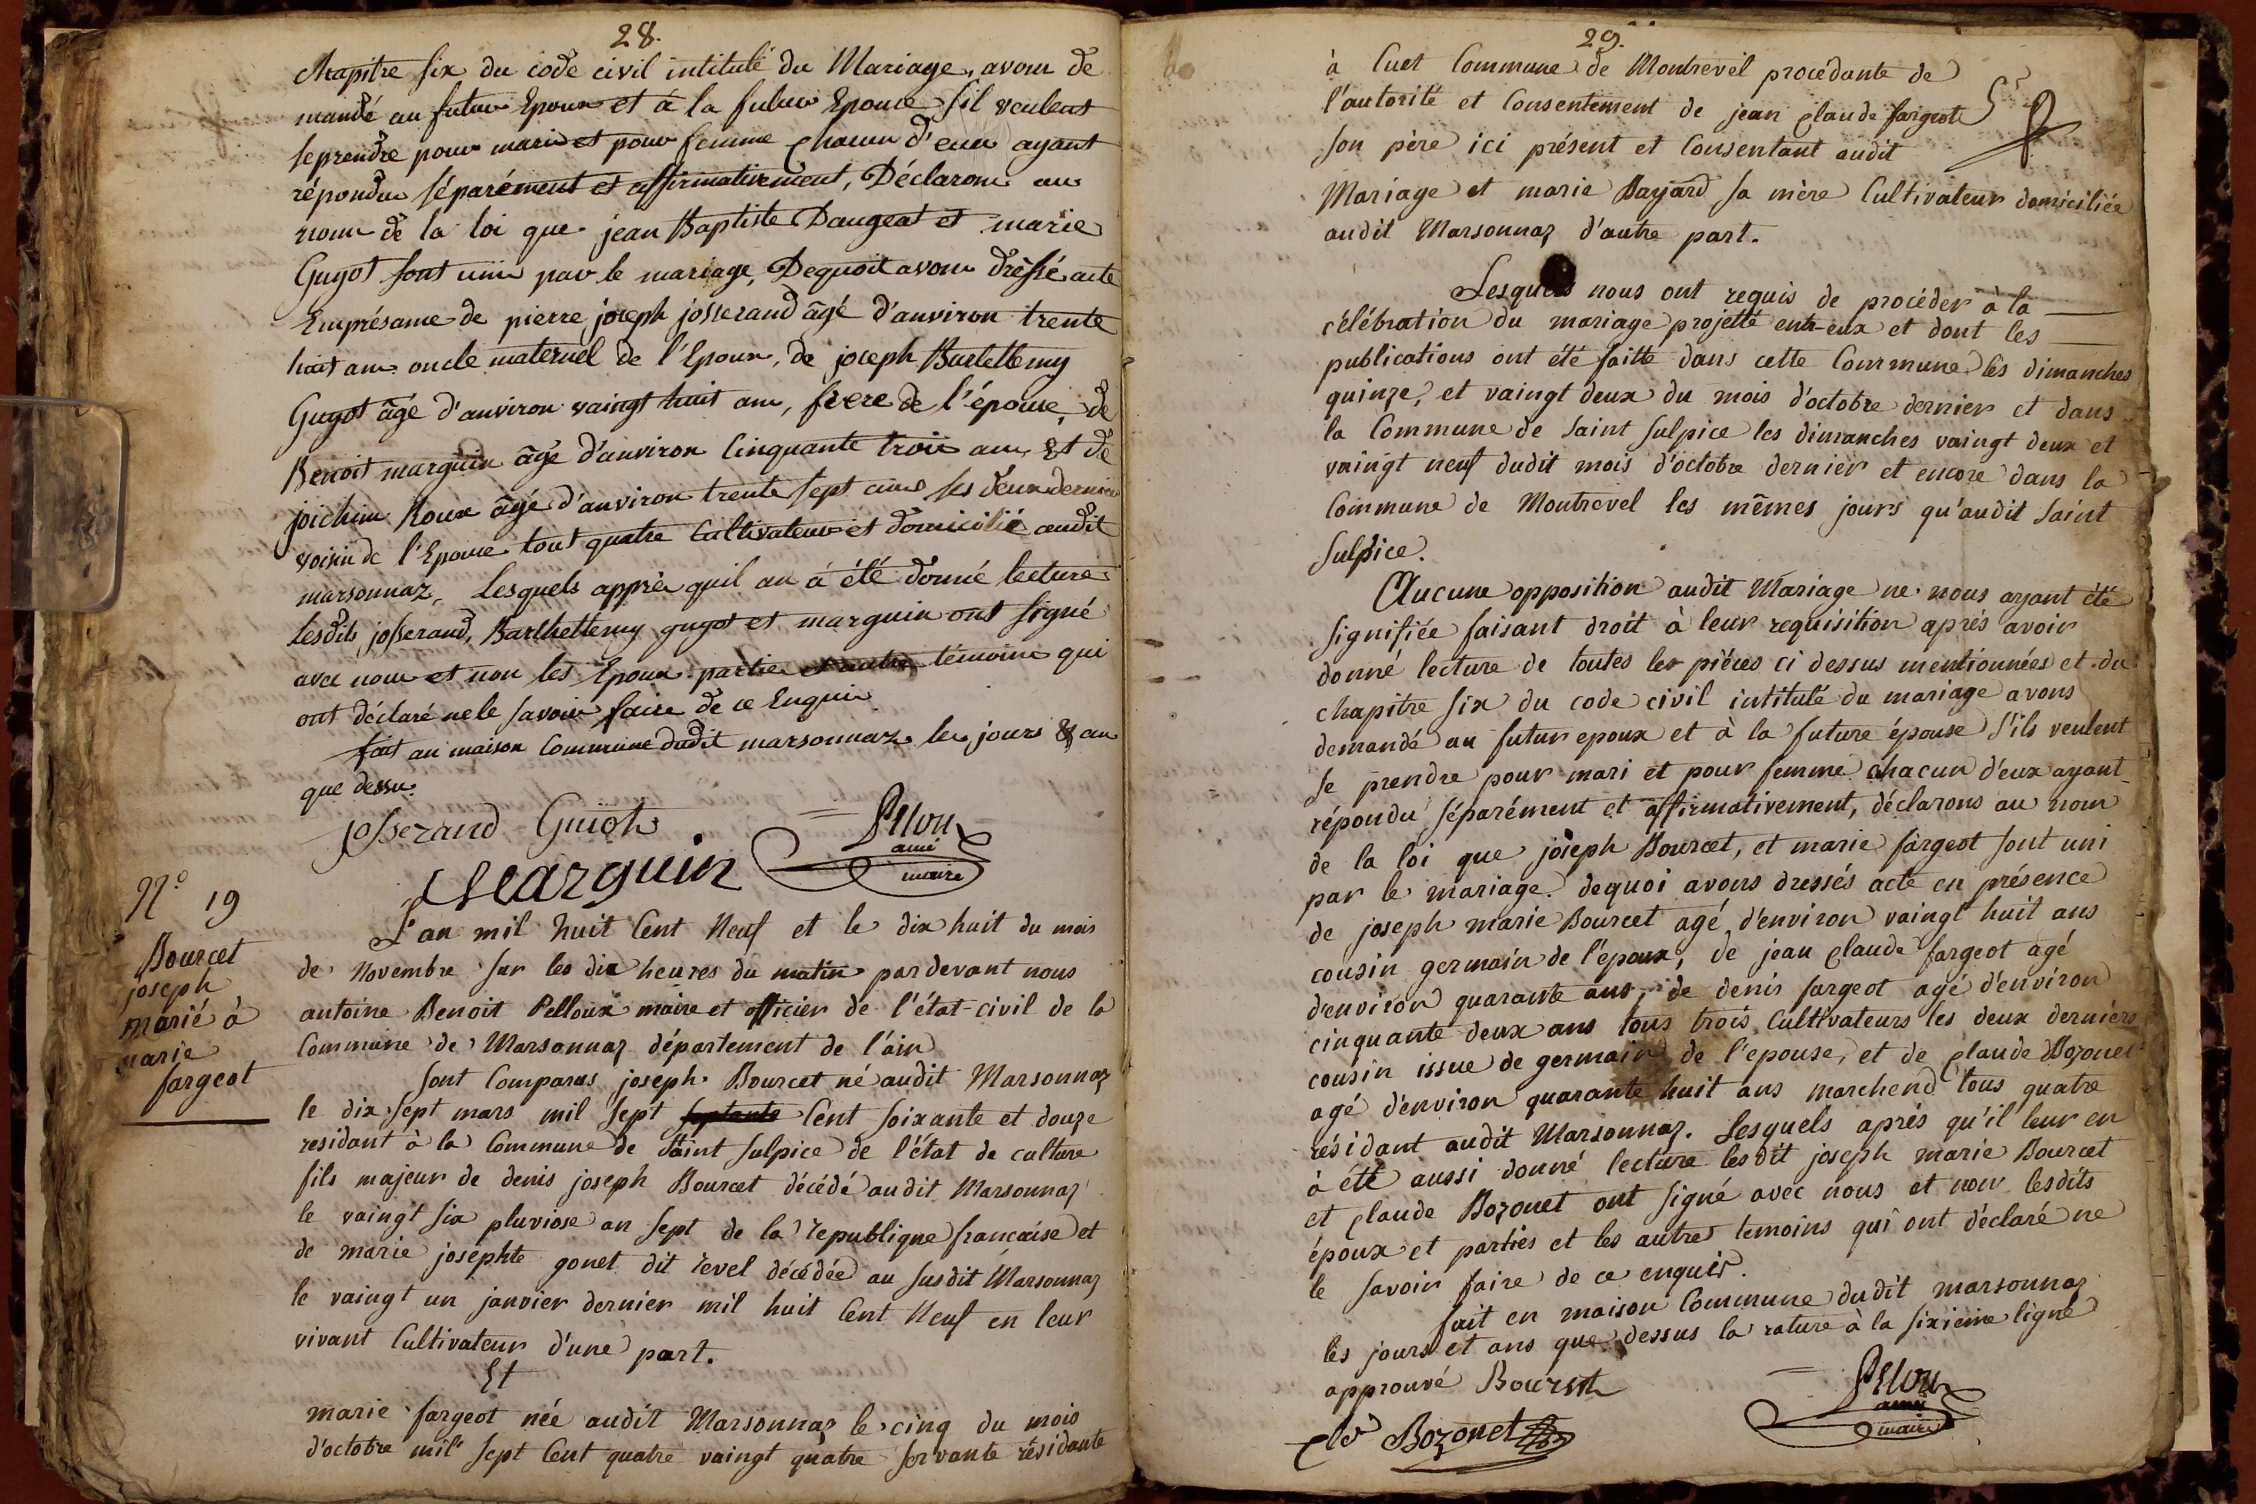 28.
chapitre six du code civil intitulé du Mariage, avons de
mandé au futur Epoux et à la future Epouse sil veulent
se prendre pour mari et pour femme chacun d'eux ayant
répondu séparément et affirmativement, Déclarons au
nom de la loi que jean Baptiste Daugeat et marie
Guyot sont unis par le mariage, Dequoit avons dressé acte
Emprésance de pierre joseph josserand âgé d'anviron trente
huit ans oncle maternel de l'Epoux, de joseph Barlettemy
Guyot âgé d'anviron vaingt huit ans, frere de l'épouse, de
Benoit marguin âgé d'anviron Cinquante trois ans, Et de
joichim Roux âgé d'anviron trente sept ans les deux dernier
voisin de l'Epouse tout quatre Cultivateur et domicilié audit
marsonnaz, Lesquels apprès quil an à été donné lecture
Lesdits josserand, Barthettemy guyot et marguin ont signé
avec nous et non les Epoux partie témoins qui
ont déclaré ne le savoir faire de ce Enquis
fait an maison Commune dudit marsonnaz les jours & an
que dessu.
josserand Guioh Pelou
Marguin amé
maire
N.o 19
Bourcet
joseph
marié à
marie
fargeot
L'an mil huit Cent Neuf et le dix huit du mois
de Novembre sur les dix heures du matin pardevant nous
antoine Benoit Pelloux maire et officier de l'état-civil de la
Commune de Marsonnaz département de l'ain
sont Comparus joseph Bourcet né audit Marsonnaz
le dix sept mars mil sept septente Cent soixante et douze
residant à la Commune de Saint Sulpice de l'état de culture
fils majeur de denis joseph Bourcet décédé audit Marsonnaz
le vaingt six pluviose an sept de la republique francaise et
de marie josephte gonet dit revel décédée au susdit Marsonnaz
le vaingt un janvier dernier mil huit Cent Neuf en leur
vivant Cultivateur d'une part.
Et
marie fargeot née audit Marsonnaz le cinq du mois
d'octobre mil sept Cent quatre vaingt quatre servante résidante
29.
à Cuet Commune de Montrevel procédante de
l'autorité et Consentement de jean Claude fargeot
son père ici présent et Consentant audit
Mariage et marie Bayard sa mère Cultivateur domiciliée
audit Marsonnaz d'autre part.
Lesquels nous ont requis de procéder à la
célébration du mariage projetté entr-eux et dont les
publications ont été faitte dans cette Commune les dimanches
quinze, et vaingt deux du mois d'octobre dernier et dans
la Commune de Saint Sulpice les dimanches vaingt deux et
vaingt neuf dudit mois d'octobre dernier et encore dans la
Commune de Montrevel les mêmes jours qu'audit Saint
Sulpice.
Aucune opposition audit Mariage ne nous ayant été
signifiée faisant droit à leur requisition après avoir
donné lecture de toutes les piéces ci dessus mentionnées et du
chapitre six du code civil intitulé du mariage avons
demandé au futur epoux et à la future épouse s'ils veulent
se prendre pour mari et pour femme chacun d'eux ayant
répondu séparément et affirmativement, déclarons au nom
de la loi que joseph Bourcet, et marie fargeot sont uni
par le mariage. dequoi avons dressés acte en présence
de joseph marie Bourcet agé d'environ vaingt huit ans
cousin germain de l'époux, de jean Claude fargeot agé
d'environ quarante ans, de denis fargeot agé d'environ
cinquante deux ans tous trois Cultivateurs les deux derniérs
cousin issue de germain de l'epouse, et de Claude Bozonet
agé d'environ quarante huit ans marchend tous quatre
résidant audit Marsonnaz. Lesquels aprés qu'il leur en
à été aussi donné lecture lesdit joseph marie Bourcet
et Claude Bozonet ont signé avec nous et non lesdits
époux et parties et les autres temoins qui ont déclaré ne
le savoir faire de ce enquis.
fait en maison Commune dudit marsonnaz
les jours et ans que dessus la rature à la sixieme ligne
approuvé Bourset Pelou
amé
Cl.d Bozonet maire